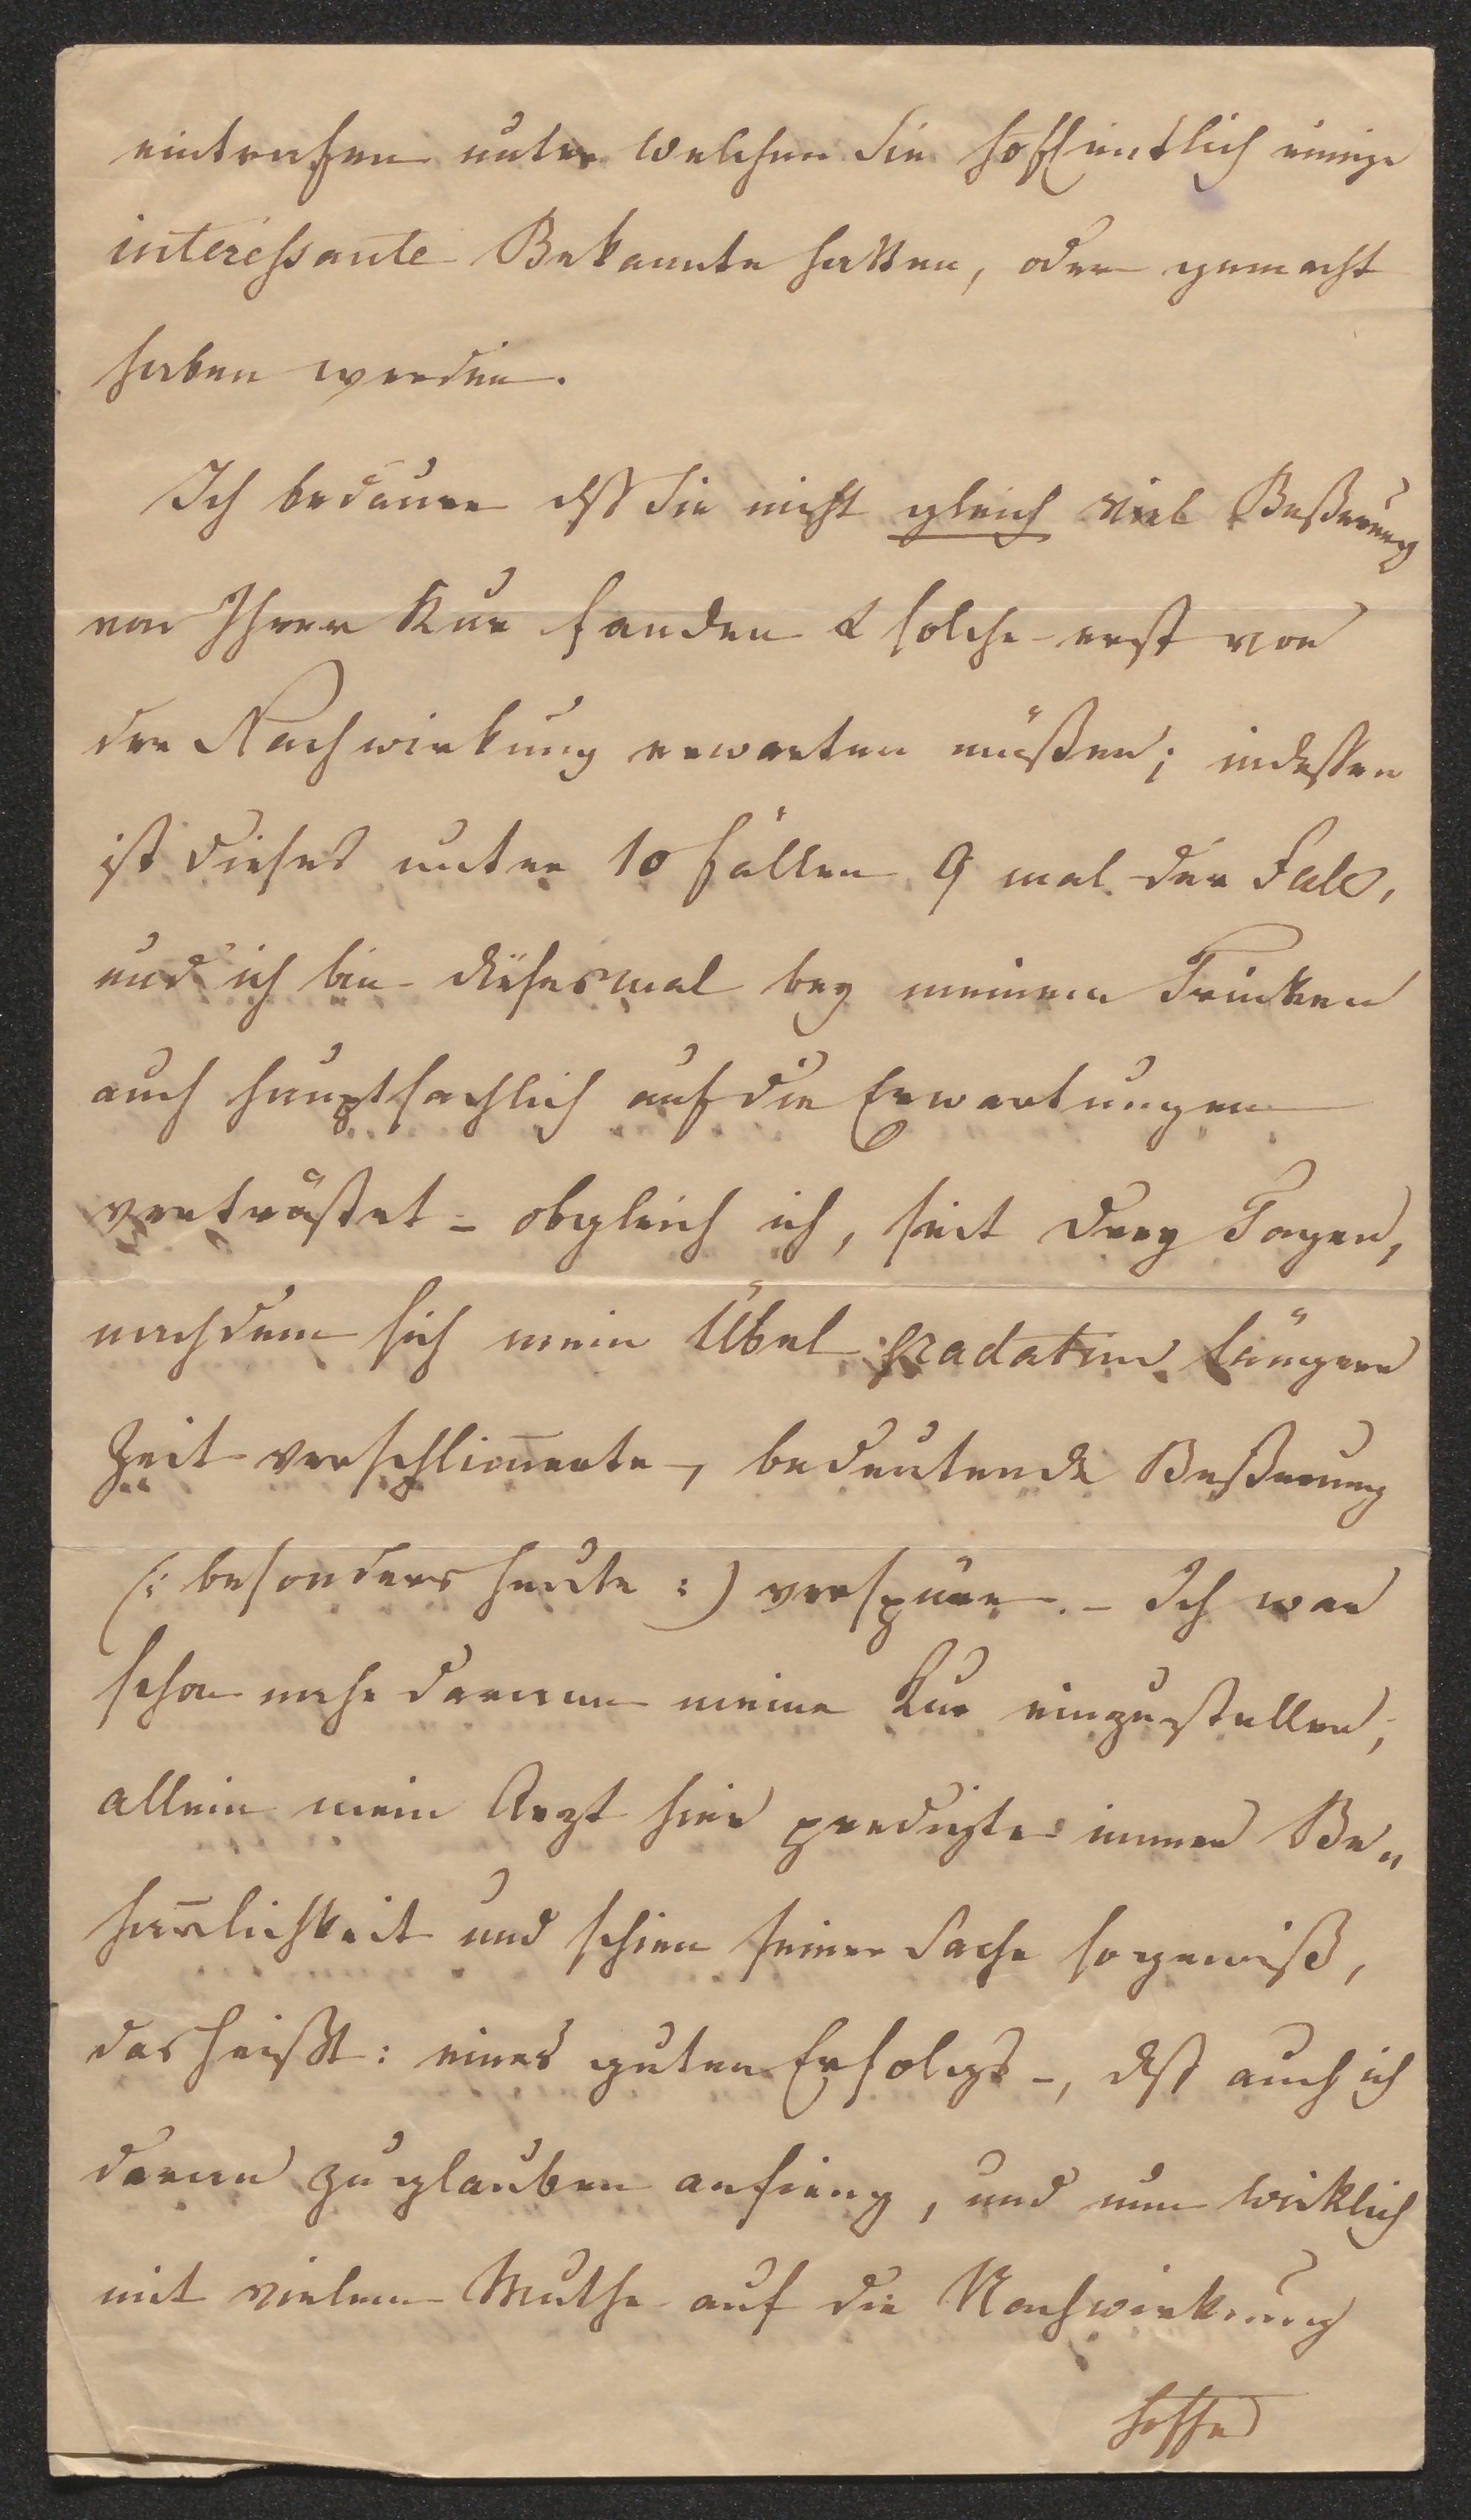 eintrafen unter welchen Sie hoffentlich einige
interessante Bekannte hatten, oder gemacht
haben werden.
Ich bedaure dß Sie nicht gleich viel Beßerung
von Ihrer Kur fanden & solche erst von
der Nachwirkung erwarten müßen; indessen
ist dieses unter 10 Fällen 9 mal der Fall,
und ich bin diesesmal bey meinem Trinken
auch hauptsachlich auf die Erwartungen
vertröstet – obgleich ich, seit drey Tagen,
nachdem sich mein Übel gradatim längere
Zeit verschlim̅erte –, bedeutende Beßerung
(: besonders heute :) verspüre. – Ich war
schon nahe daran meine Kur einzustellen,
allein mein Arzt hier predigte immer Be„
har̅lichkeit und schien seiner Sache so gewiß,
das heißt: eines guten Erfolgs –, dß auch ich
daran zu glauben anfieng, und nun wirklich
mit vielem Muthe auf die Nachwirkung
hoffe